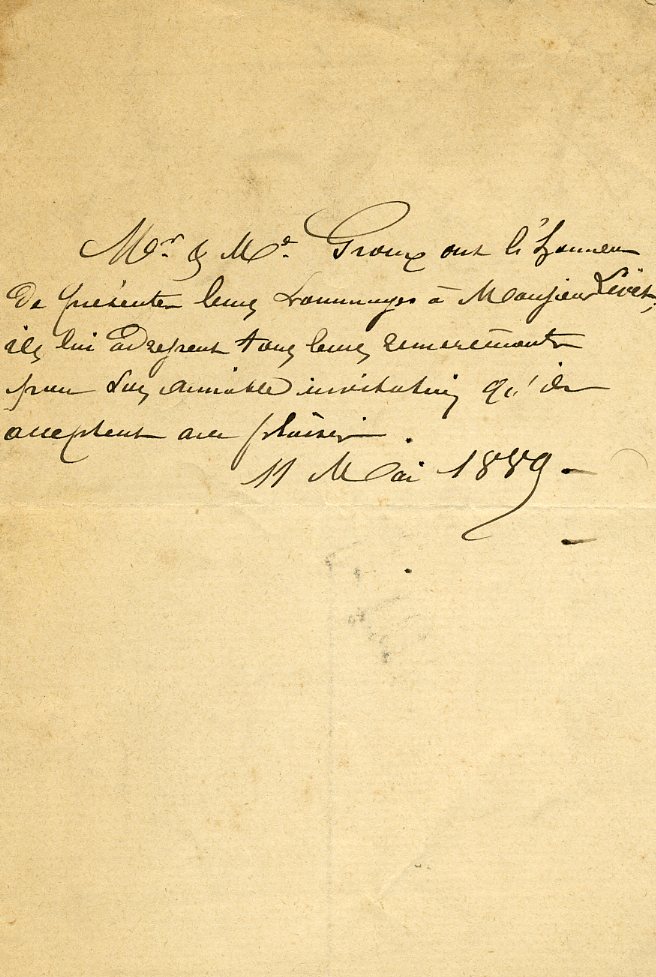 Mr. & Me. Groux ont l'honneur
de présenter leurs hommages à Monsieur Livet,
ils lui adressent tous leurs remerciments
pour son aimable invitation qu'ils
acceptent avec plaisir.
11 Mai 1889.